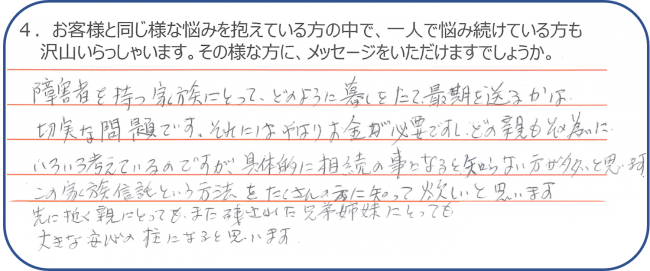 ４．お客様と同じ様な悩みを抱えている方の中で、一人で悩み続けている方も
沢山いらっしゃいます。その様な方に、メッセージをいただけますでしょうか。
障害者を持つ家族にとって、どのように暮しをたて、最期を送るかは
切実な問題です。それにはやはりお金が必要ですし、どの親もその為に
いろいろ考えているのですが、具体的に相続の事となると知らない方が多いと思います
この家族信託という方法をたくさんの方に知って欲しいと思います
先に逝く親にとっても、また残された兄弟姉妹にとっても
大きな安心の柱になると思います